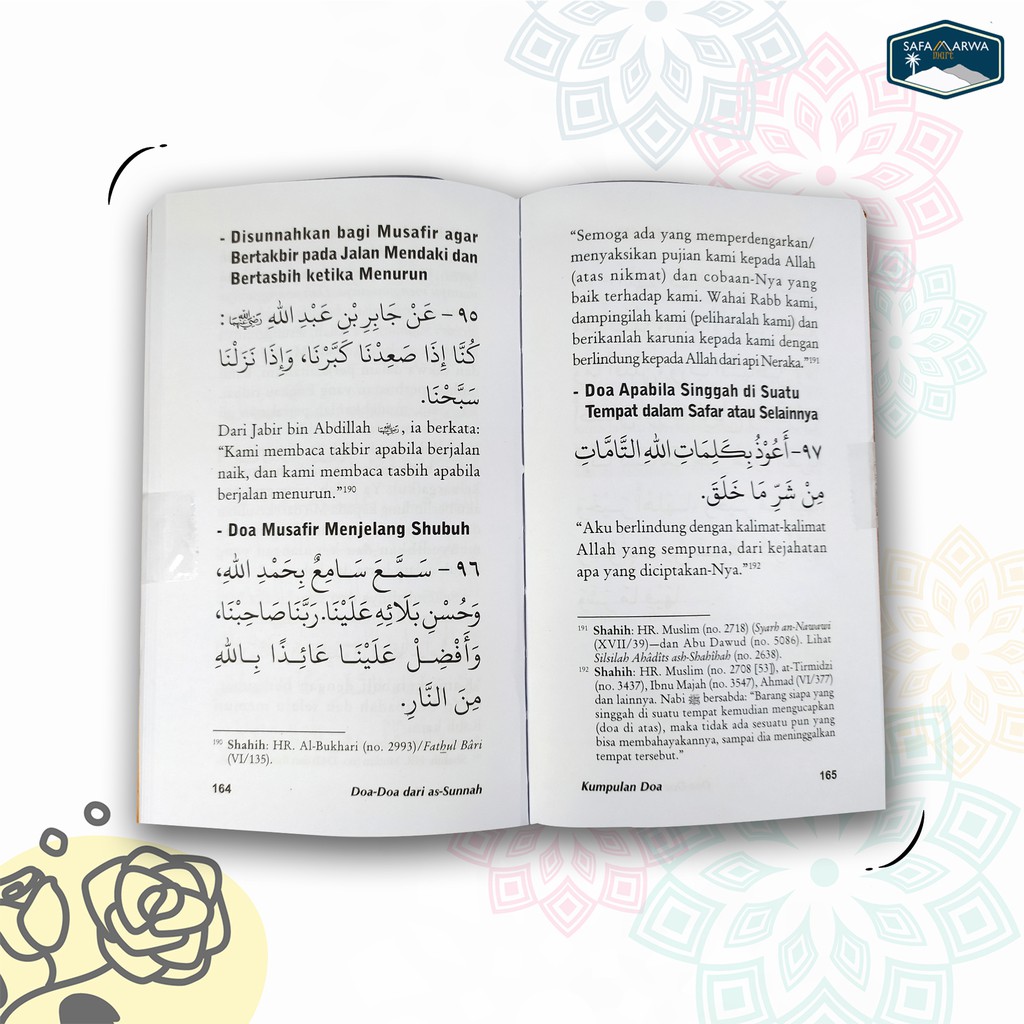 SAFA MARWA
mart
- Disunnahkan bagi Musafir agar
Bertakbir pada Jalan Mendaki dan
Bertasbih ketika Menurun
٩٥ - عَنْ جَابِرِ بْنِ عَبْدِ اللهِ :
كُنَّا إِذَا صَعِدْنَا كَبَّرْنَا، وَإِذَا نَزَلْنَا
سَبَّحْنَا.
Dari Jabir bin Abdillah , ia berkata:
“Kami membaca takbir apabila berjalan
naik, dan kami membaca tasbih apabila
berjalan menurun.”190
- Doa Musafir Menjelang Shubuh
٩٦ - سَمَّعَ سَامِعٌ بِحَمْدِ اللهِ،
وَحُسْنِ بَلَائِهِ عَلَيْنَا. رَبَّنَا صَاحِبْنَا،
وَأَفْضِلْ عَلَيْنَا عَائِذًا بِاللهِ
مِنَ النَّارِ.
190 Shahih: HR. Al-Bukhari (no. 2993)/Fathul Bâri
(VI/135).
164 Doa-Doa dari as-Sunnah
“Semoga ada yang memperdengarkan/
menyaksikan pujian kami kepada Allah
(atas nikmat) dan cobaan-Nya yang
baik terhadap kami. Wahai Rabb kami,
dampingilah kami (peliharalah kami) dan
berikanlah karunia kepada kami dengan
berlindung kepada Allah dari api Neraka.”191
- Doa Apabila Singgah di Suatu
Tempat dalam Safar atau Selainnya
٩٧- أَعُوْذُ بِكَلِمَاتِ اللهِ التَّامَّاتِ
مِنْ شَرِّ مَا خَلَقَ.
“Aku berlindung dengan kalimat-kalimat
Allah yang sempurna, dari kejahatan
apa yang diciptakan-Nya.”192
191 Shahih: HR. Muslim (no. 2718) (Syarh an-Nawawi
(XVII/39)—dan Abu Dawud (no. 5086). Lihat
Silsilah Ahâdîts ash-Shahîhah (no. 2638).
192 Shahih: HR. Muslim (no. 2708 [53]), at-Tirmidzi
(no. 3437), Ibnu Majah (no. 3547), Ahmad (VI/377)
dan lainnya. Nabi ﷺ bersabda: “Barang siapa yang
singgah di suatu tempat kemudian mengucapkan
(doa di atas), maka tidak ada sesuatu pun yang
bisa membahayakannya, sampai dia meninggalkan
tempat tersebut.”
Kumpulan Doa 165